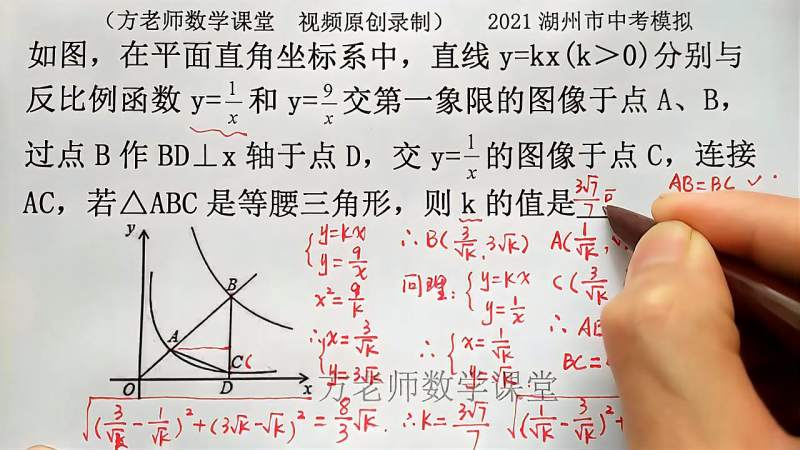 （方老师数学课堂 视频原创录制） 2021湖州市中考模拟
如图，在平面直角坐标系中，直线 y=kx(k＞0)分别与
反比例函数 y=1/x 和 y=9/x 交第一象限的图像于点 A、B，
过点 B 作 BD⊥x 轴于点 D，交 y=1/x 的图像于点 C，连接
AC，若△ABC 是等腰三角形，则 k 的值是 3√7/7
AB=BC ✓
y
B
A
C
O
D
x
{y=kx
y=9/x
x²=9/k
∴{x=3/√k
y=3√k
∴B(3/√k, 3√k) A(1/√k,
同理：{y=kx
y=1/x
C(3/√k
∴{x=1/√k
y=√k
BC=
方老师数学课堂
√((3/√k-1/√k)²+(3√k-√k)²)=8/3√k
∴k=3√7/7
√((1/√k-3/√k)²+